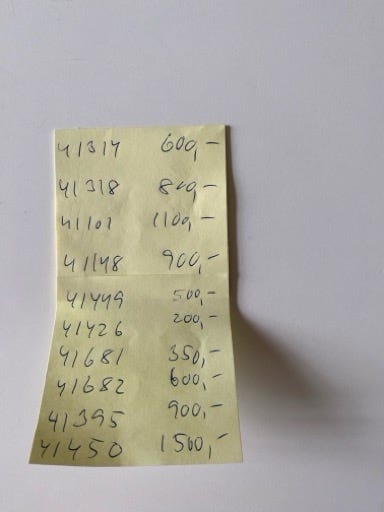 41317 600,-
41318 800,-
41101 1100,-
41148 900,-
41449 500,-
41426 200,-
41681 350,-
41682 600,-
41395 900,-
41450 1500,-